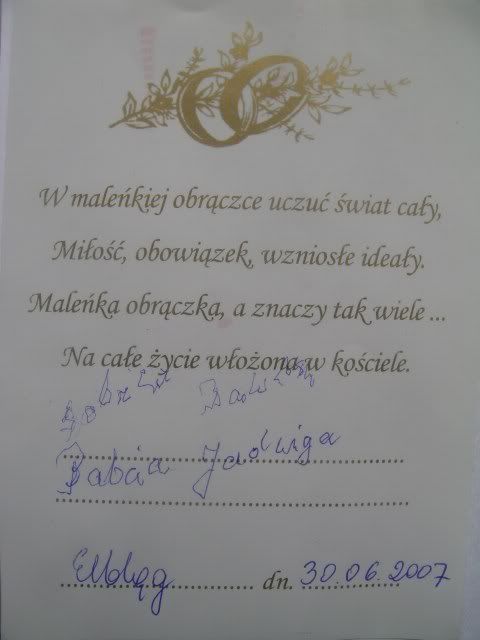 W maleńkiej obrączce uczuć świat cały,
Miłość, obowiązek, wzniosłe ideały.
Maleńka obrączka, a znaczy tak wiele ...
Na całe życie włożona w kościele.
Babcia Jadwiga
dn. 30.06.2007